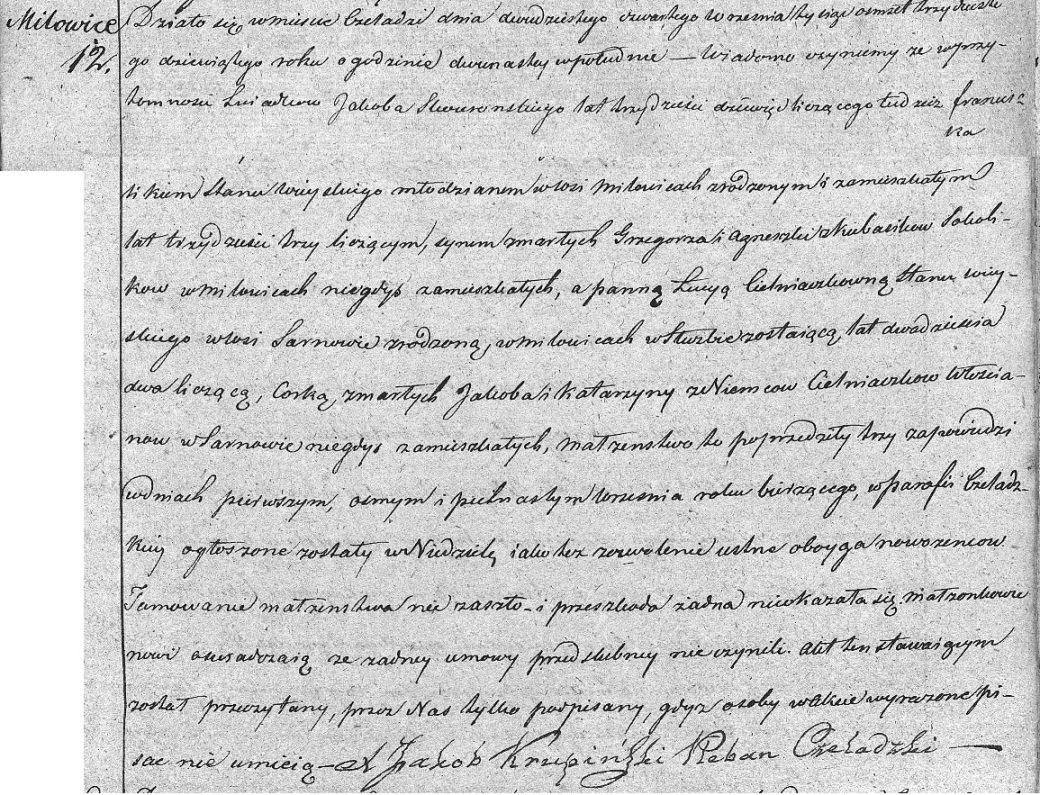 Milowice
12.
Działo się w miescie Czeladzi dnia dwudziestego czwartego Września tysiąc osmset trzydzieste
go dziewiątego roku o godzinie dwunastey w południe — Wiadomo czyniemy ze w przy-
tomnosci Swiadkow Jakoba lat trzydzieści dziewięć liczącego tudzież francisz-
ka
likiem Stanu wieyskiego młodzianem w wsi Milowicach zrodzonym i zamieszkałym
lat trzydzieści trzy liczącym, synem zmarłych Grzegorza i Agnieszki z Kubasikow Sobol-
kow w Milowicach niegdys zamieszkałych, a panną Łucyą Cielniaczkowną Stanu wiey-
skiego w wsi Sarnowie zrodzoną, w Milowicach w Służbie zostaiącą, lat dwadzieścia
dwa liczącą, Corką zmarłych Jakoba i Katarzyny z Niemcow Cielniaczkow Włościa-
now w Sarnowie niegdys zamieszkałych, Małżenstwo to poprzedziły trzy zapowiedzi
w dniach pierwszym, osmym i pietnastym Wrzesnia roku bieżącego, w parafii Czeladz-
kiey ogłoszone zostały w Niedzielę iako tez zezwolenie ustne oboyga nowozencow
Tamowanie małżenstwa nie zaszło i przeszkoda żadna nieokazała się. Małzonkowie
nowi oswiadczaią ze zadney umowy przedslubney nie czynili. Akt ten stawaiącym
został przeczytany, przez Nas tylko podpisany, gdyz osoby w Akcie wyrazone pi-
sac nie umieią — X Jakób Krzępiński Pleban Czeladzki —